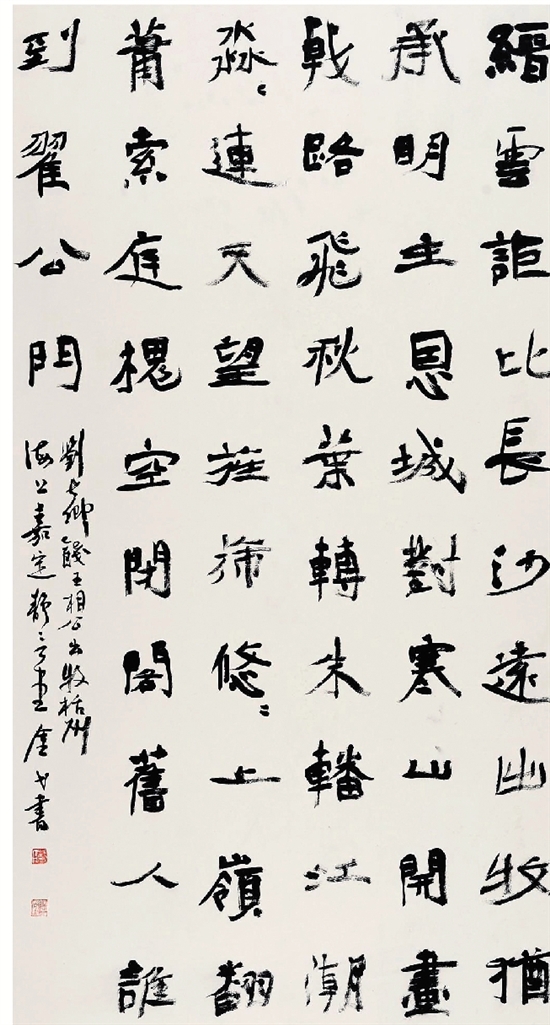 縉雲詎比長沙遠出牧猶
承明主恩城對寒山開畫
戟路飛秋葉轉朱轓江潮
淼〻連天望旌旆悠〻上嶺翻
蕭索庭槐空閉閤舊人誰
到翟公門
劉長卿餞王相公出牧括州
海上嘉定 書